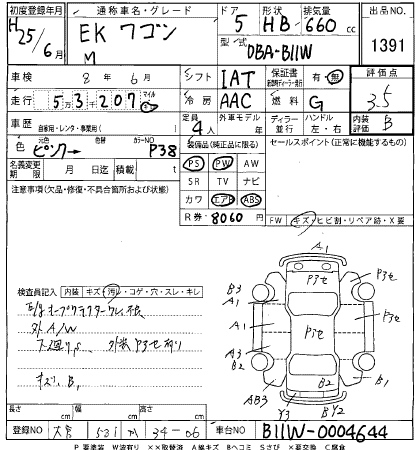 初度登録年月 通称車名・グレード ドア 形状 排気量 出品No.
H25/6月 EK ワゴン M 5 HB 660 cc 1391
型式 DBA-B11W
車検 8年 6月 シフト IAT 保証書 有・無 評価点 3.5
走行 53207 マイル km 冷房 AAC 燃料 G
車歴 自家用・レンタ・事業用( ) 定員 4人 外車モデル年 年 ディーラー 並行 ハンドル 左・右 内装評価 B
色 元色 ピンク→ 色替 カラーNo. P38 装備品(純正品に限る) セールスポイント(正常に機能するもの)
名義変更期限 月 日 積載 t PS PW AW
注意事項(欠品・修復・不具合箇所および状態) SR TV ナビ
カワ エアB ABS
R券 8060円 FW キズ・ヒビ割・リペア跡・X要
検査員記入 内装 キズ・汚レ・コゲ・穴・スレ・キレ
外A/W
下廻りS 外装P3セ有り
キズ,B,
A1
P3セ
B3
A1
P3セ
A1
P3セ
P3セ
A3
B2
AB3
B2
B1
Y3
BY2
長さ cm 幅 cm 高さ cm
登録No 531 34-06 車台No B11W-0004644
P 要塗装 W波有り XX取替済 A線キズ Bヘコミ Sさび X要交換 C腐食